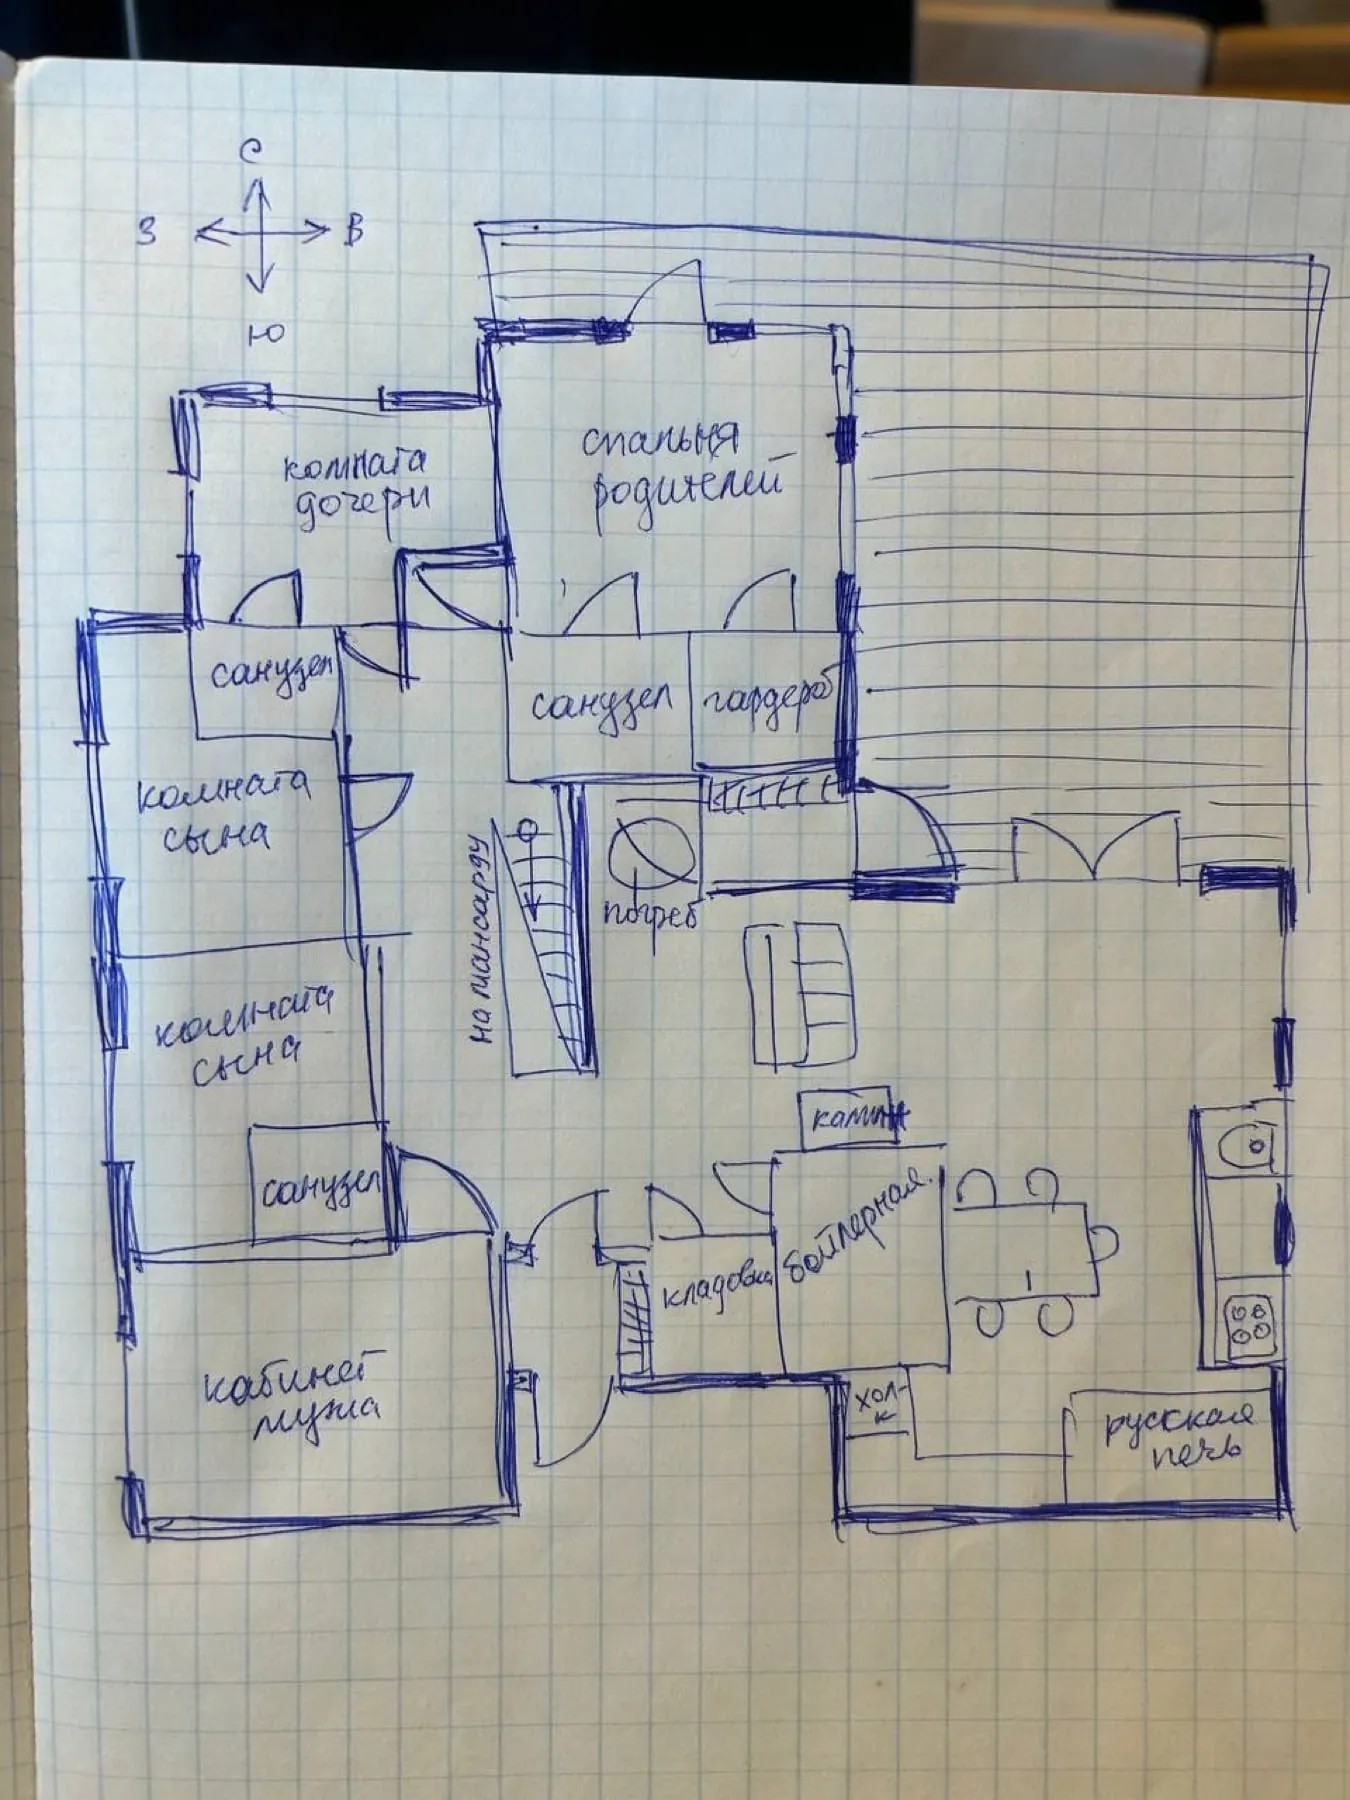 С
З В
Ю
комната
дочери
спальня
родителей
санузел
санузел
гардероб
комната
сына
на мансарду
погреб
комната
сына
камин
санузел
бойлерная
кладовка
кабинет
мужа
хол-
к
русская
печь